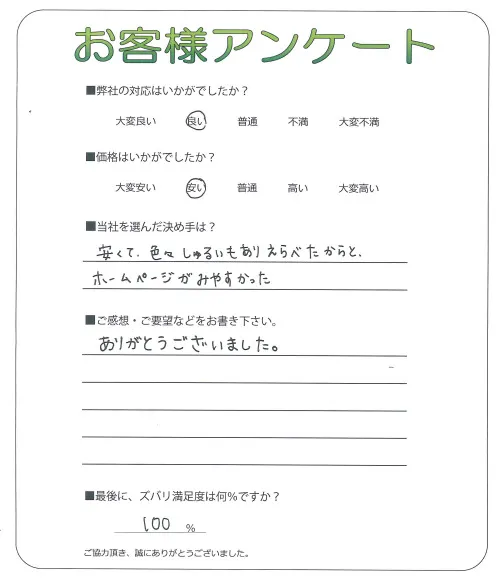 お客様アンケート
■弊社の対応はいかがでしたか？
大変良い 良い 普通 不満 大変不満
■価格はいかがでしたか？
大変安い 安い 普通 高い 大変高い
■当社を選んだ決め手は？
安くて、色々しゅるいもありえらべたからと、
ホームページがみやすかった
■ご感想・ご要望などをお書き下さい。
ありがとうございました。
■最後に、ズバリ満足度は何％ですか？
100 %
ご協力頂き、誠にありがとうございました。